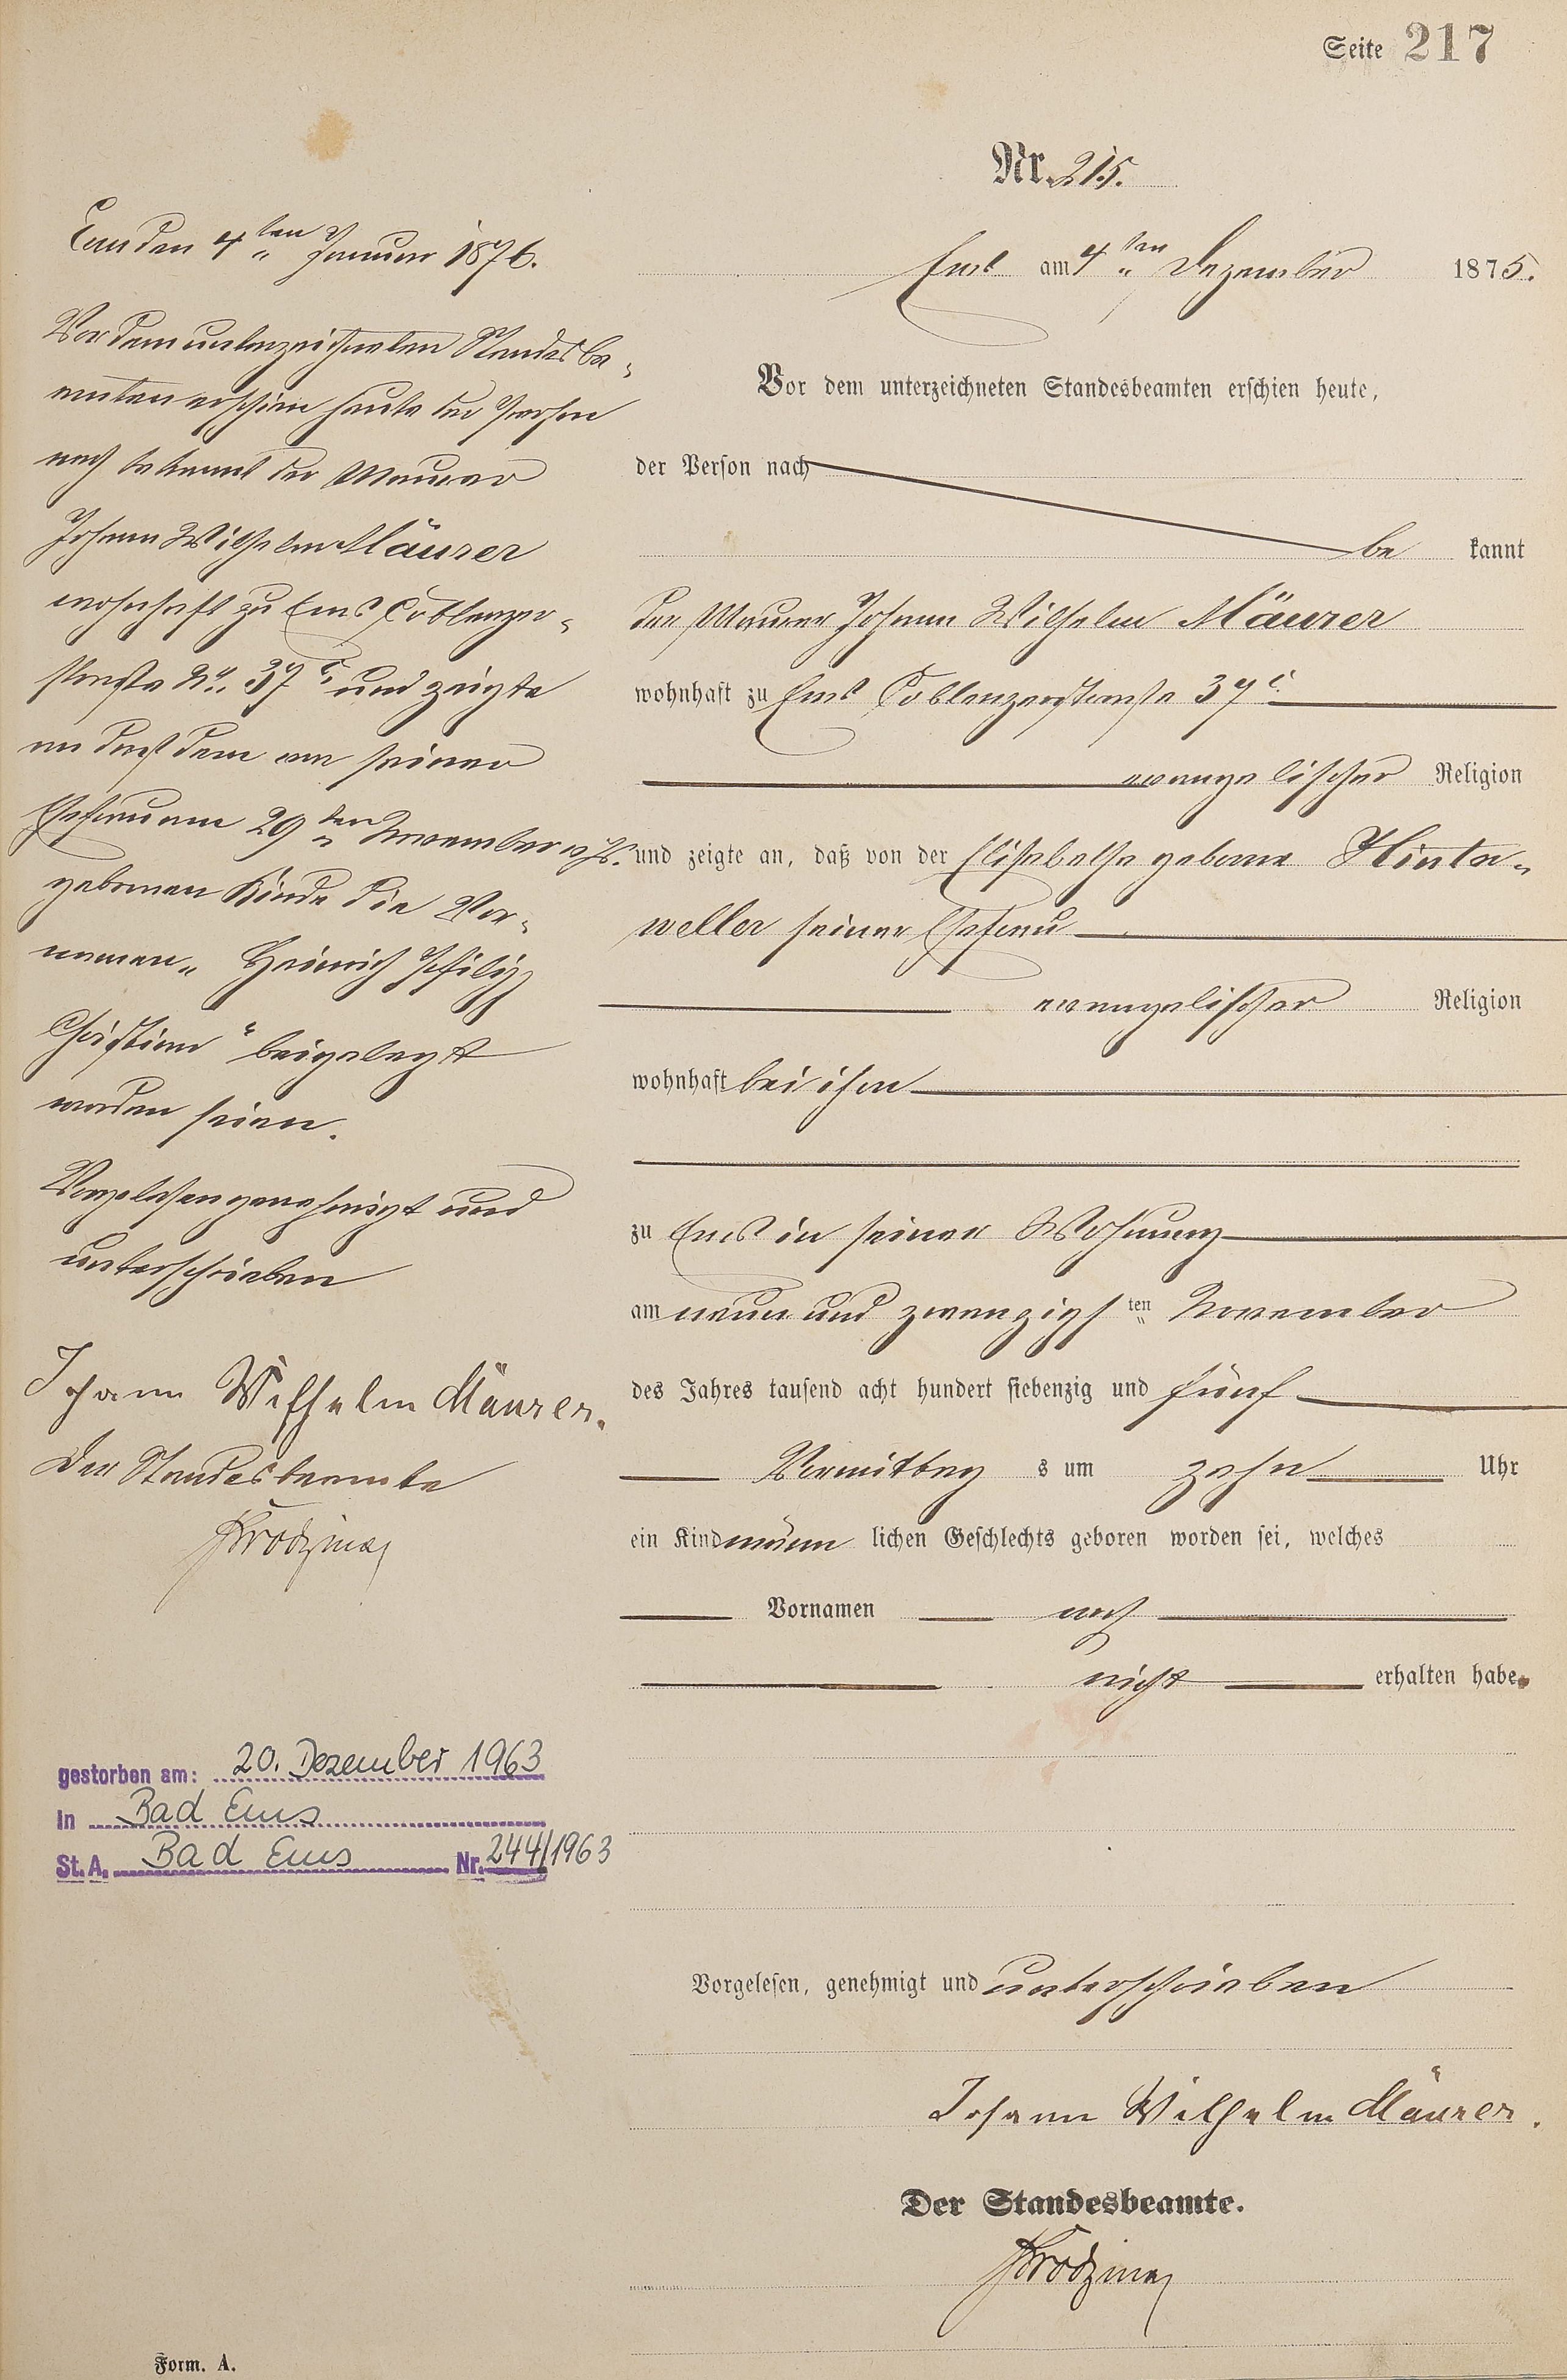 Seite 217
Nr. 215.
Ems am 4ten Dezember 1875.
Vor dem unterzeichneten Standesbeamten erschien heute,
der Person nach
be kannt
der Maurer Johann Wilhelm Mäurer
wohnhaft zu Ems Coblenzerstraße 37c
evangelischer Religion
und zeigte an, daß von der Elisabethe geborne Hinter-
weller seiner Ehefrau
evangelischer Religion
wohnhaft bei ihm
zu Ems in seiner Wohnung
am neun und zwanzigsten November
des Jahres tausend acht hundert siebenzig und fünf
Vormittag s um zehn Uhr
ein Kind männ lichen Geschlechts geboren worden sei, welches
Vornamen noch
nicht erhalten habe.
Vorgelesen, genehmigt und unterschrieben
Johann Wilhelm Mäurer.
Der Standesbeamte.
Ems den 4ten Januar 1876.
Vor dem unterzeichneten Standesbe-
amten erschien heute der Person
nach bekannt der Maurer
Johann Wilhelm Mäurer
wohnhaft zu Ems Coblenzer-
straße No. 37c und zeigte
an daß dem von seiner
Ehefrau am 29ten November v. Js.
gebornen Kinde die Vor-
namen „Heinrich Philipp
Christian“ beigelegt
worden seien.
Vorgelesen genehmigt und
unterschrieben
Johann Wilhelm Mäurer.
Der Standesbeamte
gestorben am: 20. Dezember 1963
in Bad Ems
St. A. Bad Ems Nr. 244/1963
Form. A.